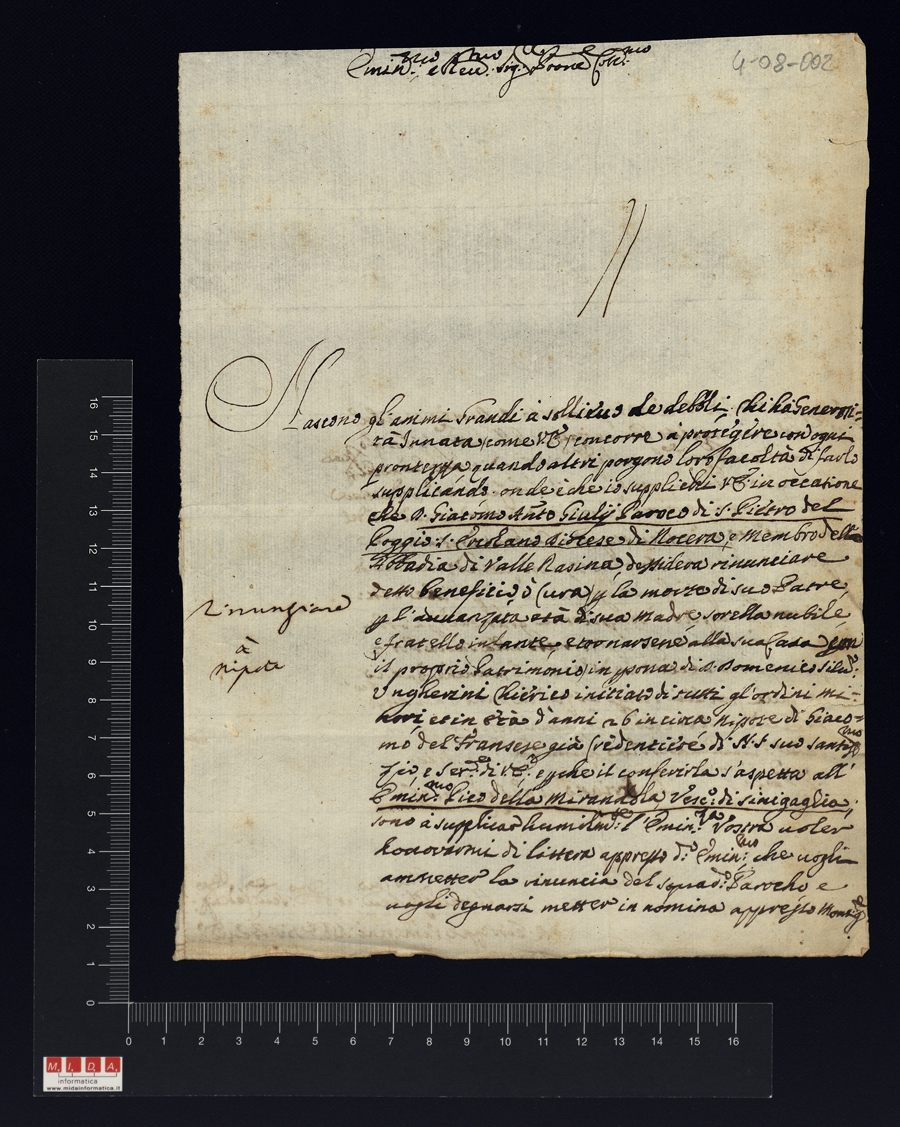 4-08-002
Emin.mo e Reu.mo Sig. Prone Coll.mo
Nascono gl'animi Grandi à sollieuo de debboli. Chi hà Generosi=
tà Innata, come V.E., concorre à protégire con ogni
prontezza quando altri porgono loro facoltà di farlo
supplicando. onde è che io supplichi V.E. in occasione
che D. Giacomo Anto Giulÿ Paroco di S. Pietro del
Poggio S. Ercolano Diocese di Nocera, e Membro della
Abbadia di Valle Rasina, desidera rinunciare
detto beneficio ò Cura, p la morte di suo Patre,
p l'auanzata età di sua madre, sorella nubile
e fratello infante, e tornarsene alla sua Casa con
il proprio Patrimonio, in psona di D. Domenico Silu.o
Ungherini Chierico initiato di tutti gl'ordini mi=
nori, et in età d'anni 26 in circa nipote di Giaco=
mo del Fransese già Credentiere di N. S. suo Santo
Zio, e Ser.e di V.E., e pche il conferirla s'aspetta all'
Emin.mo Pico della Mirandola Vesc.o di Sinigaglia,
sono à supplicar humilm.te l'Emin.za Vostra uoler
honorarmi di littera appresso d.o Emin.mo che uogli
ammetter la rinuncia del squad.o Parocho e
uogli degnarsi metter in nomina appresso Monsig.re
Rinunziare
à
nipote
16
15
14
13
12
11
10
9
8
7
6
5
4
3
2
1
0
0 1 2 3 4 5 6 7 8 9 10 11 12 13 14 15 16
M. I. D. A.
informatica
www.midainformatica.it